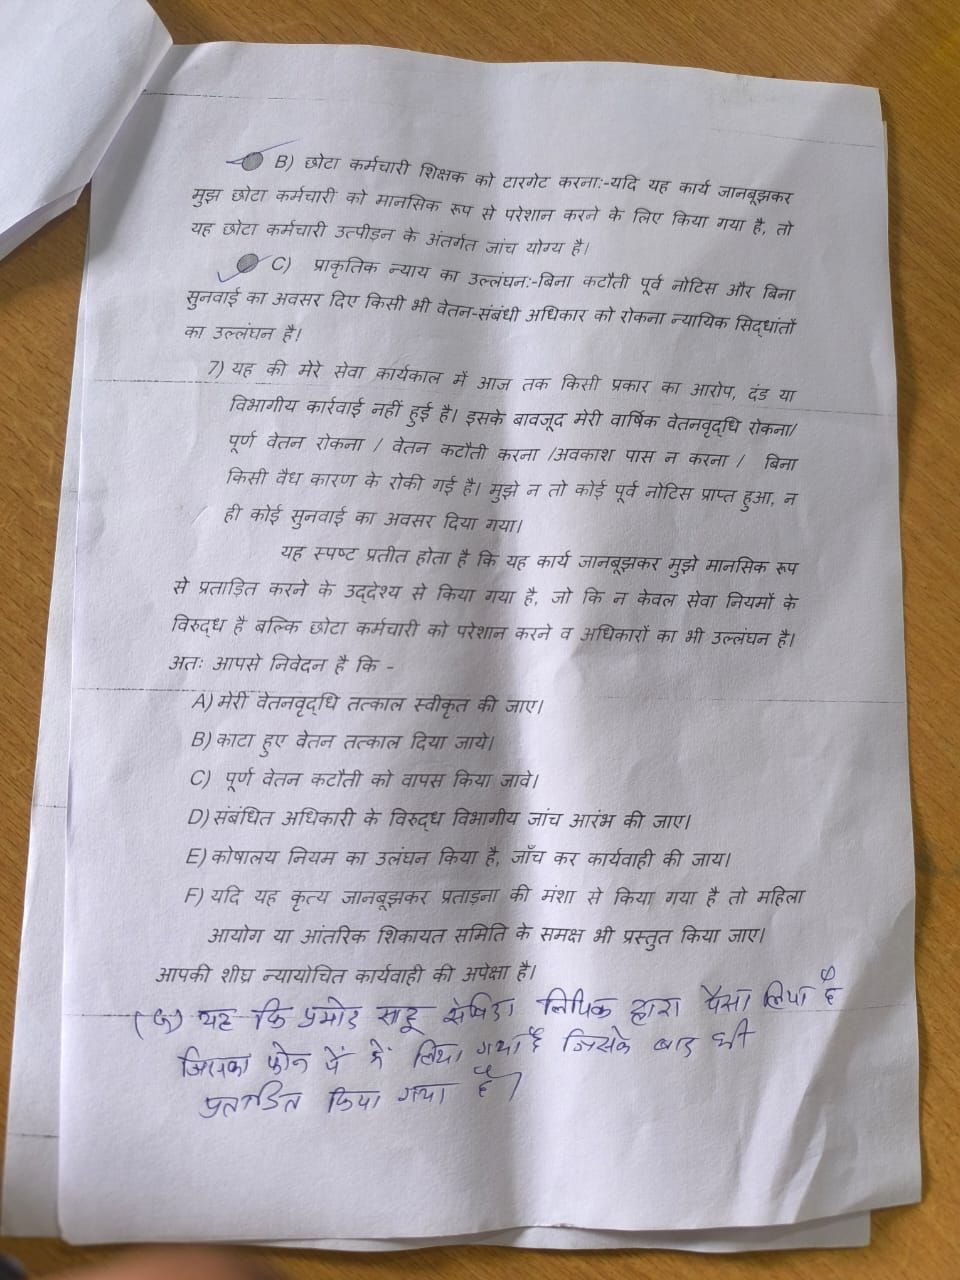 B) छोटा कर्मचारी शिक्षक को टारगेट करना:-यदि यह कार्य जानबूझकर
मुझ छोटा कर्मचारी को मानसिक रूप से परेशान करने के लिए किया गया है, तो
यह छोटा कर्मचारी उत्पीड़न के अंतर्गत जांच योग्य है।
C) प्राकृतिक न्याय का उल्लंघन:-बिना कटौती पूर्व नोटिस और बिना
सुनवाई का अवसर दिए किसी भी वेतन-संबंधी अधिकार को रोकना न्यायिक सिद्धांतों
का उल्लंघन है।
7) यह की मेरे सेवा कार्यकाल में आज तक किसी प्रकार का आरोप, दंड या
विभागीय कार्रवाई नहीं हुई है। इसके बावजूद मेरी वार्षिक वेतनवृद्धि रोकना/
पूर्ण वेतन रोकना / वेतन कटौती करना /अवकाश पास न करना / बिना
किसी वैध कारण के रोकी गई है। मुझे न तो कोई पूर्व नोटिस प्राप्त हुआ, न
ही कोई सुनवाई का अवसर दिया गया।
यह स्पष्ट प्रतीत होता है कि यह कार्य जानबूझकर मुझे मानसिक रूप
से प्रताड़ित करने के उद्देश्य से किया गया है, जो कि न केवल सेवा नियमों के
विरुद्ध है बल्कि छोटा कर्मचारी को परेशान करने व अधिकारों का भी उल्लंघन है।
अतः आपसे निवेदन है कि -
A) मेरी वेतनवृद्धि तत्काल स्वीकृत की जाए।
B) काटा हुए वेतन तत्काल दिया जाये।
C) पूर्ण वेतन कटौती को वापस किया जावे।
D) संबंधित अधिकारी के विरुद्ध विभागीय जांच आरंभ की जाए।
E) कोषालय नियम का उलंघन किया है, जाँच कर कार्यवाही की जाय।
F) यदि यह कृत्य जानबूझकर प्रताड़ना की मंशा से किया गया है तो महिला
आयोग या आंतरिक शिकायत समिति के समक्ष भी प्रस्तुत किया जाए।
आपकी शीघ्र न्यायोचित कार्यवाही की अपेक्षा है।
यह कि प्रमोद साहू लिपिक द्वारा पैसा लिया है
जिसका फोन पे में लिया गया है जिसके बाद भी
प्रताडित किया गया है